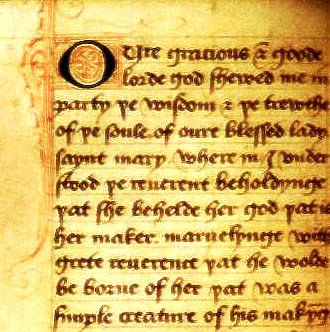 Oure gracious & goode
lorde god shewed me in
party þe wisdom & þe trewthe
of þe soule of oure blessed lady
saynt mary. where in I vnder
stood þe reuerent beholdynge
þat she behelde her god þat is
her maker. maruelynge with
grete reuerence þat he wolde
be borne of her þat was a
symple creature of his makyng